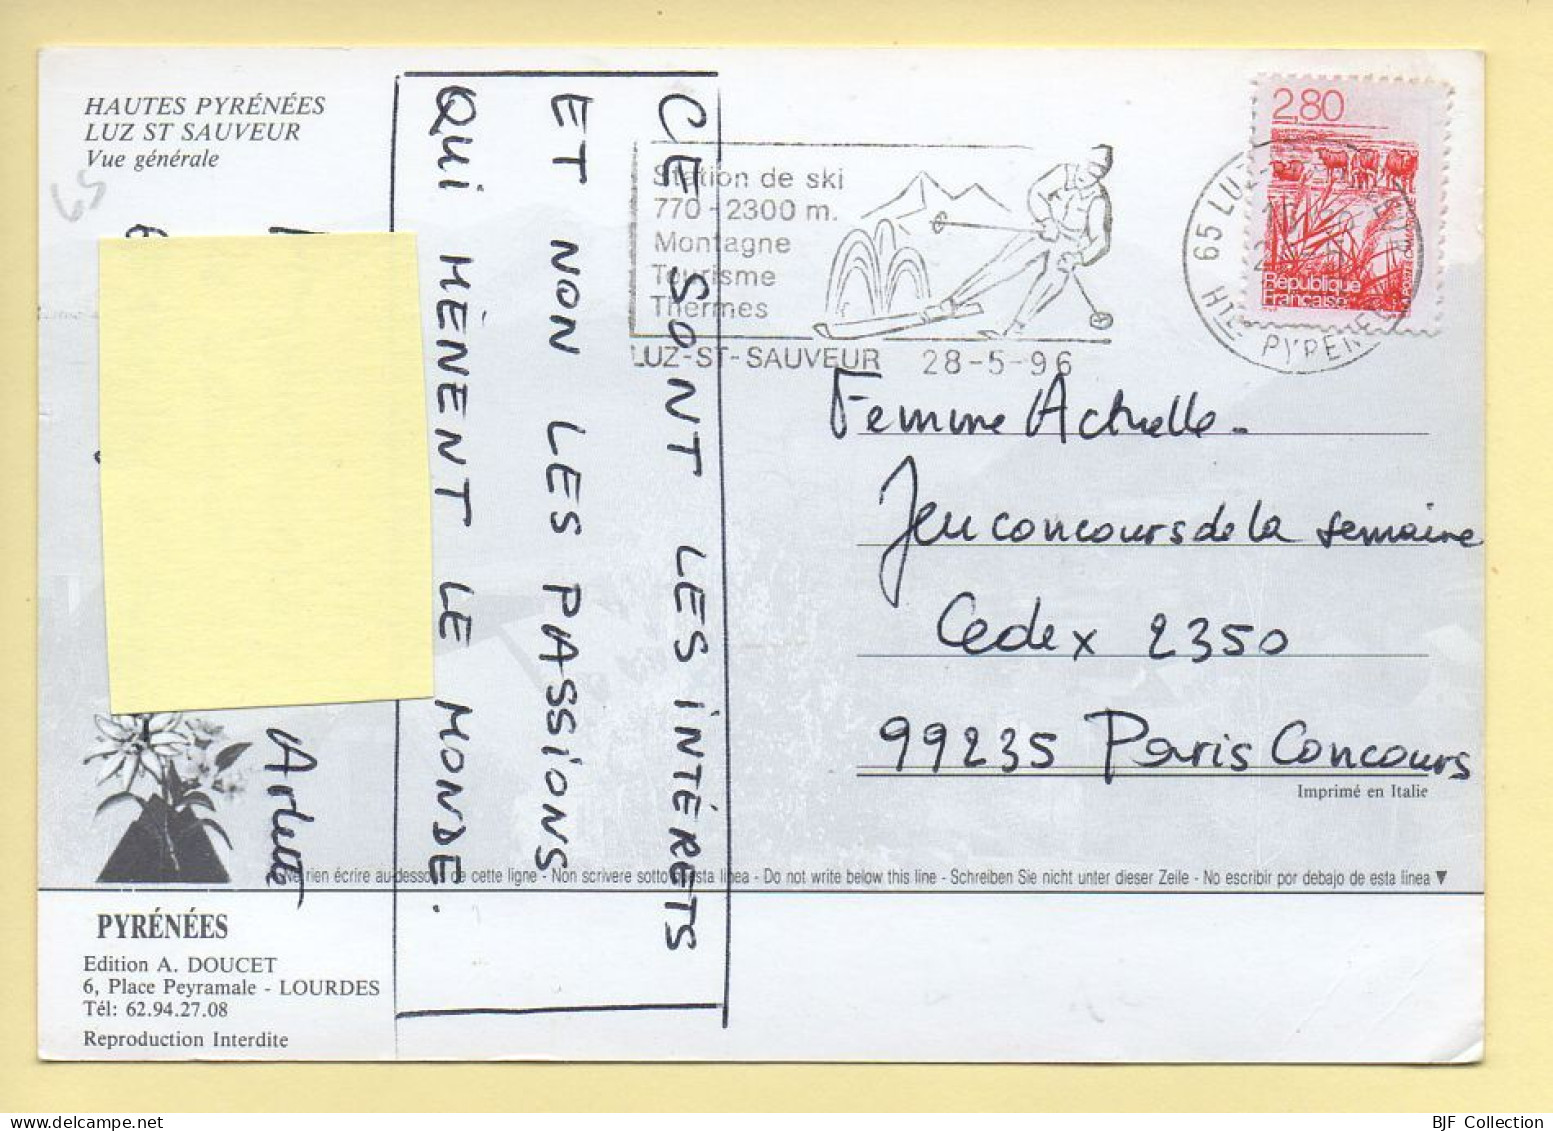 HAUTES PYRÉNÉES
LUZ ST SAUVEUR
Vue générale
65
CE SONT LES INTÉRETS
ET NON LES PASSIONS
QUI MÈNENT LE MONDE.
Arlette
Station de ski
770-2300 m.
Montagne
Tourisme
Thermes
LUZ-ST-SAUVEUR 28-5-96
2,80
République
Française
65 LUZ
HTES PYRENEES
Femme Actuelle-
Jeu concours de la semaine
Cedex 2350
99235 Paris Concours
Imprimé en Italie
rien écrire au-dessous de cette ligne - Non scrivere sotto questa linea - Do not write below this line - Schreiben Sie nicht unter dieser Zeile - No escribir por debajo de esta linea ▼
PYRÉNÉES
Edition A. DOUCET
6, Place Peyramale - LOURDES
Tél: 62.94.27.08
Reproduction Interdite
BJF Collection